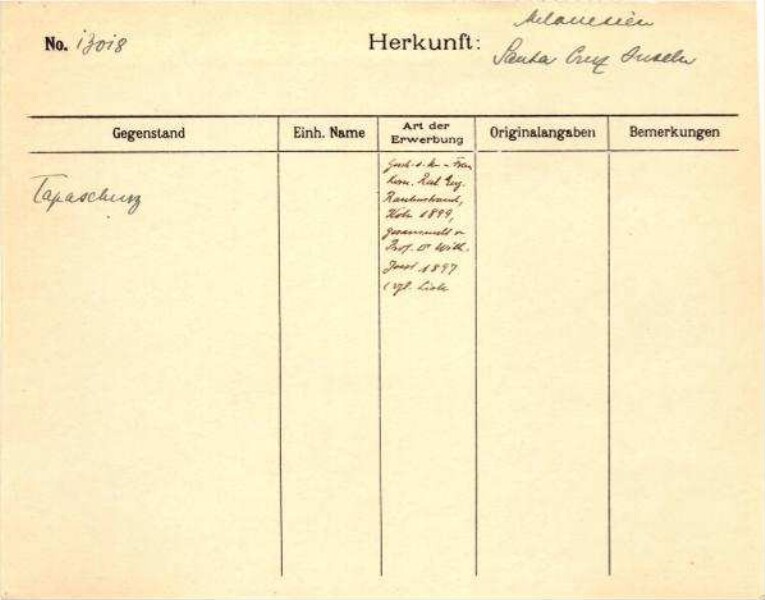 No. 13018
Herkunft:
Melanesien
Santa Cruz Inseln
Gegenstand
Einh. Name
Art der
Erwerbung
Originalangaben
Bemerkungen
Tapaschurz
Gesch. v. H. - Frau
Eug.
Rautenstrauch,
Köln 1899,
gesammelt v.
Prof. Dr Wilh.
Joest 1897
(vgl. Liste